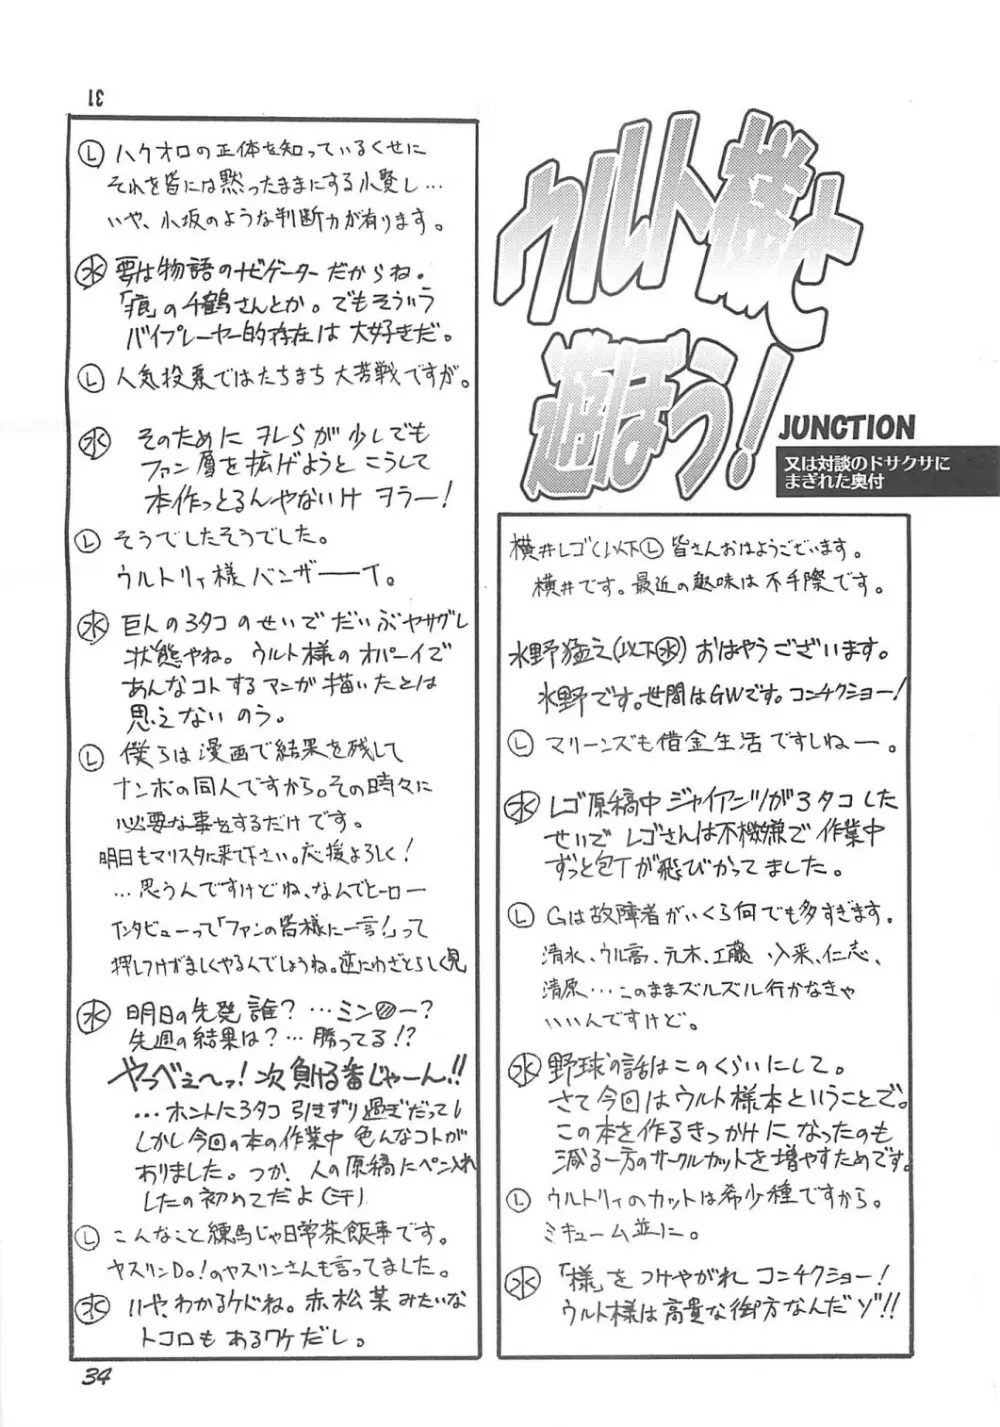 31
ウルト様と
遊ぼう!
JUNCTION
又は対談のドサクサに
まぎれた奥付
横井レゴ(以下Ⓛ) 皆さんおはようございます。
横井です。最近の趣味は不手際です。
水野猛之(以下㊌) おはやうございます。
水野です。世間はGWです。コンチクショー!
Ⓛ マリーンズも借金生活ですしねー。
㊌ レゴ原稿中ジャイアンツが3タコした
せいでレゴさんは不機嫌で作業中
ずっと包丁が飛びかってました。
Ⓛ Gは故障者がいくら何でも多すぎます。
清水、ウル高、元木、工藤 入来、仁志、
清原…このままズルズル行かなきゃ
いいんですけど。
㊌ 野球の話はこのくらいにして。
さて今回はウルト様本ということで。
この本を作るきっかけになったのも
減る一方のサークルカットを増やすためです。
Ⓛ ウルトリィのカットは希少種ですから。
ミキューム並に。
㊌ 「様」をつけやがれコンチクショー!
ウルト様は高貴な御方なんだゾ!!
Ⓛ ハクオロの正体を知っているくせに
それを皆には黙ったままにする小賢し…
いや、小坂のような判断力が有ります。
㊌ 要は物語のナビゲーターだからね。
「痕」の千鶴さんとか。でもそういう
バイプレーヤー的存在は大好きだ。
Ⓛ 人気投票ではたちまち大苦戦ですが。
㊌ そのためにヲレらが少しでも
ファン層を拡げようとこうして
本作っとるんやないけヲラー!
Ⓛ そうでしたそうでした。
ウルトリィ様バンザーーイ。
㊌ 巨人の3タコのせいでだいぶヤサグレ
状態やね。ウルト様のオパーイで
あんなコトするマンガ描いたとは
思えないのう。
Ⓛ 僕らは漫画で結果を残して
ナンボの同人ですから。その時々に
必要な事をするだけです。
明日もマリスタに来て下さい。応援よろしく!
…思うんですけどね、なんでヒーロー
インタビューって「ファンの皆様に一言!」って
押しつけがましくやるんでしょうね。逆にわざとらしく見
㊌ 明日の先発誰?…ミン
ー?
先週の結果は?…勝ってる!?
やっべぇ〜っ!次負ける番じゃーん!!
…ホントに3タコ引きずり過ぎだって!
しかし今回の本の作業中色んなコトが
ありました。つか、人の原稿にペン入れ
したの初めてだよ(汗)
Ⓛ こんなこと練馬じゃ日常茶飯事です。
ヤスリンDo!のヤスリンさんも言ってました。
㊌ いや、わかるケドね。赤松葉みたいな
トコロもあるワケだし。
34